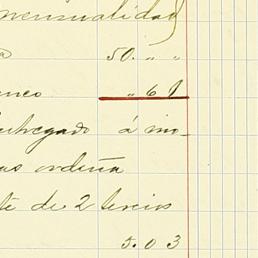 mensualidad
50. " "
" 61
entregado á mo-
ordeña
te de 2 tercios
5.03